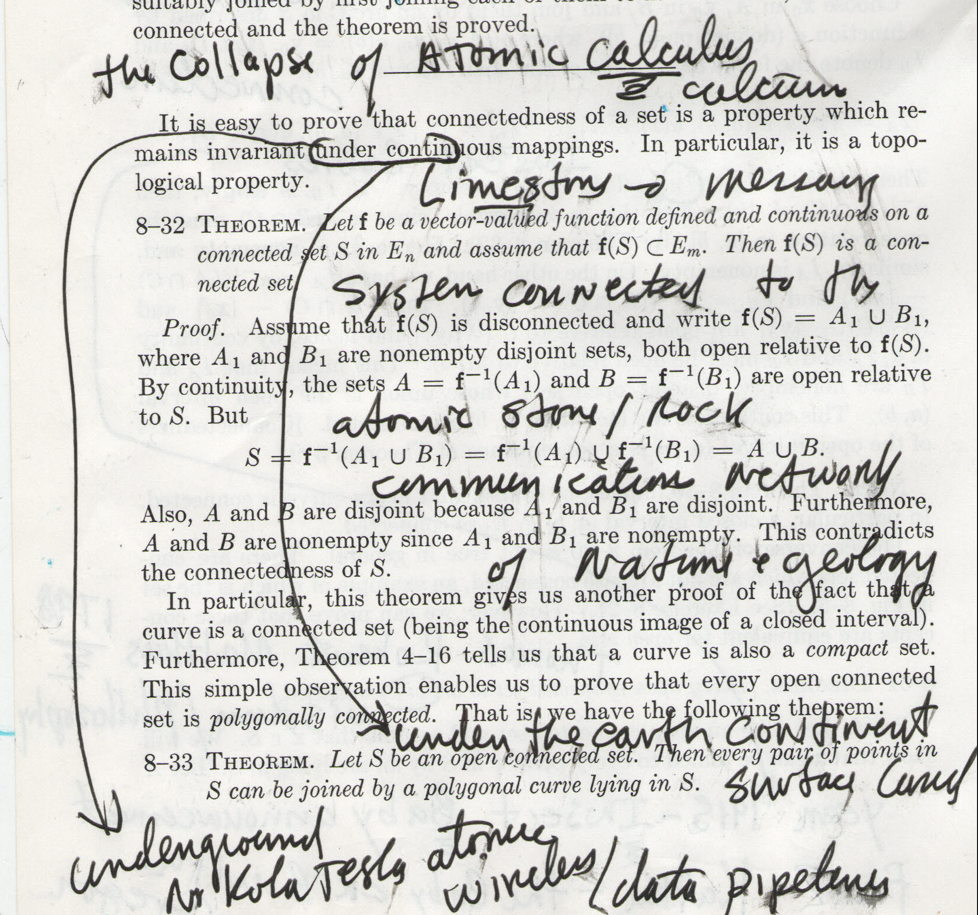 suitably joined by first joining each of them to
connected and the theorem is proved.
the Collapse of Atomic Calculus
calcium
It is easy to prove that connectedness of a set is a property which re-
mains invariant under continuous mappings. In particular, it is a topo-
logical property.
Limestone → message
8–32 THEOREM. Let f be a vector-valued function defined and continuous on a
connected set S in Eₙ and assume that f(S) ⊂ Eₘ. Then f(S) is a con-
nected set.
System connected to the
Proof. Assume that f(S) is disconnected and write f(S) = A₁ ∪ B₁,
where A₁ and B₁ are nonempty disjoint sets, both open relative to f(S).
By continuity, the sets A = f⁻¹(A₁) and B = f⁻¹(B₁) are open relative
to S. But
atomic stone / Rock
S = f⁻¹(A₁ ∪ B₁) = f⁻¹(A₁) ∪ f⁻¹(B₁) = A ∪ B.
communication network
Also, A and B are disjoint because A₁ and B₁ are disjoint. Furthermore,
A and B are nonempty since A₁ and B₁ are nonempty. This contradicts
the connectedness of S.
of Nature + geology
In particular, this theorem gives us another proof of the fact that a
curve is a connected set (being the continuous image of a closed interval).
Furthermore, Theorem 4–16 tells us that a curve is also a compact set.
This simple observation enables us to prove that every open connected
set is polygonally connected. That is, we have the following theorem:
under the earth Continent
8–33 THEOREM. Let S be an open connected set. Then every pair of points in
S can be joined by a polygonal curve lying in S.
Surface Land
underground
Nikola Tesla atomic
wireless / data pipelines